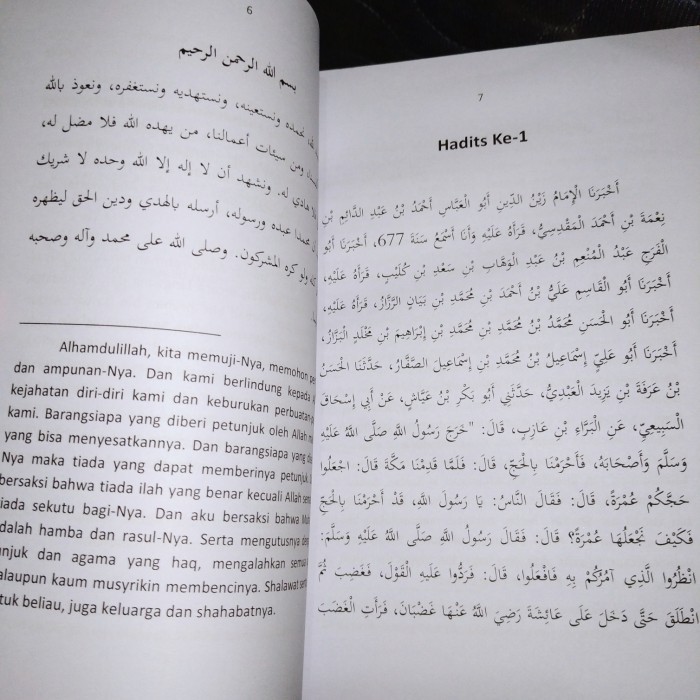 6
بسم الله الرحمن الرحيم
نحمده ونستعينه، ونستهديه ونستغفره، ونعوذ بالله
ومن سيئات أعمالنا، من يهده الله فلا مضل له،
هادي له. ونشهد أن لا إله إلا الله وحده لا شريك
محمدنا عبده ورسوله، أرسله بالهدي ودين الحق ليظهره
ولو كره المشركون. وصلى الله على محمد وآله وصحبه
Alhamdulillah, kita memuji-Nya, memohon
dan ampunan-Nya. Dan kami berlindung kepada
kejahatan diri-diri kami dan keburukan perbuatan
kami. Barangsiapa yang diberi petunjuk oleh Allah
yang bisa menyesatkannya. Dan barangsiapa yang
Nya maka tiada yang dapat memberinya petunjuk
bersaksi bahwa tiada ilah yang benar kecuali Allah
iada sekutu bagi-Nya. Dan aku bersaksi bahwa
dalah hamba dan rasul-Nya. Serta mengutusnya
unjuk dan agama yang haq, mengalahkan
alaupun kaum musyrikin membencinya. Shalawat
tuk beliau, juga keluarga dan shahabatnya.
7
Hadits Ke-1
أَخْبَرَنَا الْإِمَامُ زَيْنُ الدِّينِ أَبُو الْعَبَّاسِ أَحْمَدُ بْنُ عَبْدِ الدَّائِمِ بْنِ
نِعْمَةَ بْنِ أَحْمَدَ الْمَقْدِسِيُّ، قِرَاءَةً عَلَيْهِ وَأَنَا أَسْمَعُ سَنَةَ 677، أَخْبَرَنَا أَبُو
الْفَرَجِ عَبْدُ الْمُنْعِمِ بْنُ عَبْدِ الْوَهَّابِ بْنِ سَعْدِ بْنِ كُلَيْبٍ، قِرَاءَةً عَلَيْهِ،
أَخْبَرَنَا أَبُو الْقَاسِمِ عَلِيُّ بْنُ أَحْمَدَ بْنِ مُحَمَّدِ بْنِ بَيَانٍ الرَّزَّازُ، قِرَاءَةً عَلَيْهِ،
أَخْبَرَنَا أَبُو الْحَسَنِ مُحَمَّدُ بْنُ مُحَمَّدِ بْنِ مُحَمَّدِ بْنِ إِبْرَاهِيمَ بْنِ مَخْلَدٍ الْبَزَّازُ،
أَخْبَرَنَا أَبُو عَلِيٍّ إِسْمَاعِيلُ بْنُ مُحَمَّدِ بْنِ إِسْمَاعِيلَ الصَّفَّارُ، حَدَّثَنَا الْحَسَنُ
بْنُ عَرَفَةَ بْنِ يَزِيدَ الْعَبْدِيُّ، حَدَّثَنِي أَبُو بَكْرِ بْنُ عَيَّاشٍ، عَنْ أَبِي إِسْحَاقَ
السَّبِيعِيِّ، عَنِ الْبَرَّاءِ بْنِ عَازِبٍ، قَالَ: "خَرَجَ رَسُولُ اللَّهِ صَلَّى اللَّهُ عَلَيْهِ
وَسَلَّمَ وَأَصْحَابُهُ، فَأَحْرَمْنَا بِالْحَجِّ، قَالَ: فَلَمَّا قَدِمْنَا مَكَّةَ قَالَ: اجْعَلُوا
حَجَّكُمْ عُمْرَةً، قَالَ: فَقَالَ النَّاسُ: يَا رَسُولَ اللَّهِ، قَدْ أَحْرَمْنَا بِالْحَجِّ
فَكَيْفَ نَجْعَلُهَا عُمْرَةً؟ قَالَ: فَقَالَ رَسُولُ اللَّهِ صَلَّى اللَّهُ عَلَيْهِ وَسَلَّمَ:
انْظُرُوا الَّذِي آمُرُكُمْ بِهِ فَافْعَلُوا، قَالَ: فَرَدُّوا عَلَيهِ الْقَوْلَ، فَغَضِبَ ثُمَّ
انْطَلَقَ حَتَّى دَخَلَ عَلَى عَائِشَةَ رَضِيَ اللَّهُ عَنْهَا غَضْبَانَ، فَرَأَتِ الْغَضَبَ